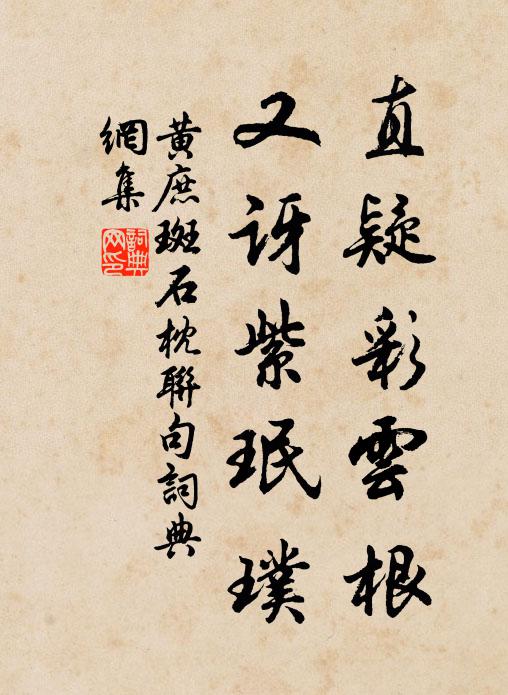 直疑彩雲根
又訝紫珉璞
黄庶斑石枕聯句詞典
網集
詞典
网印